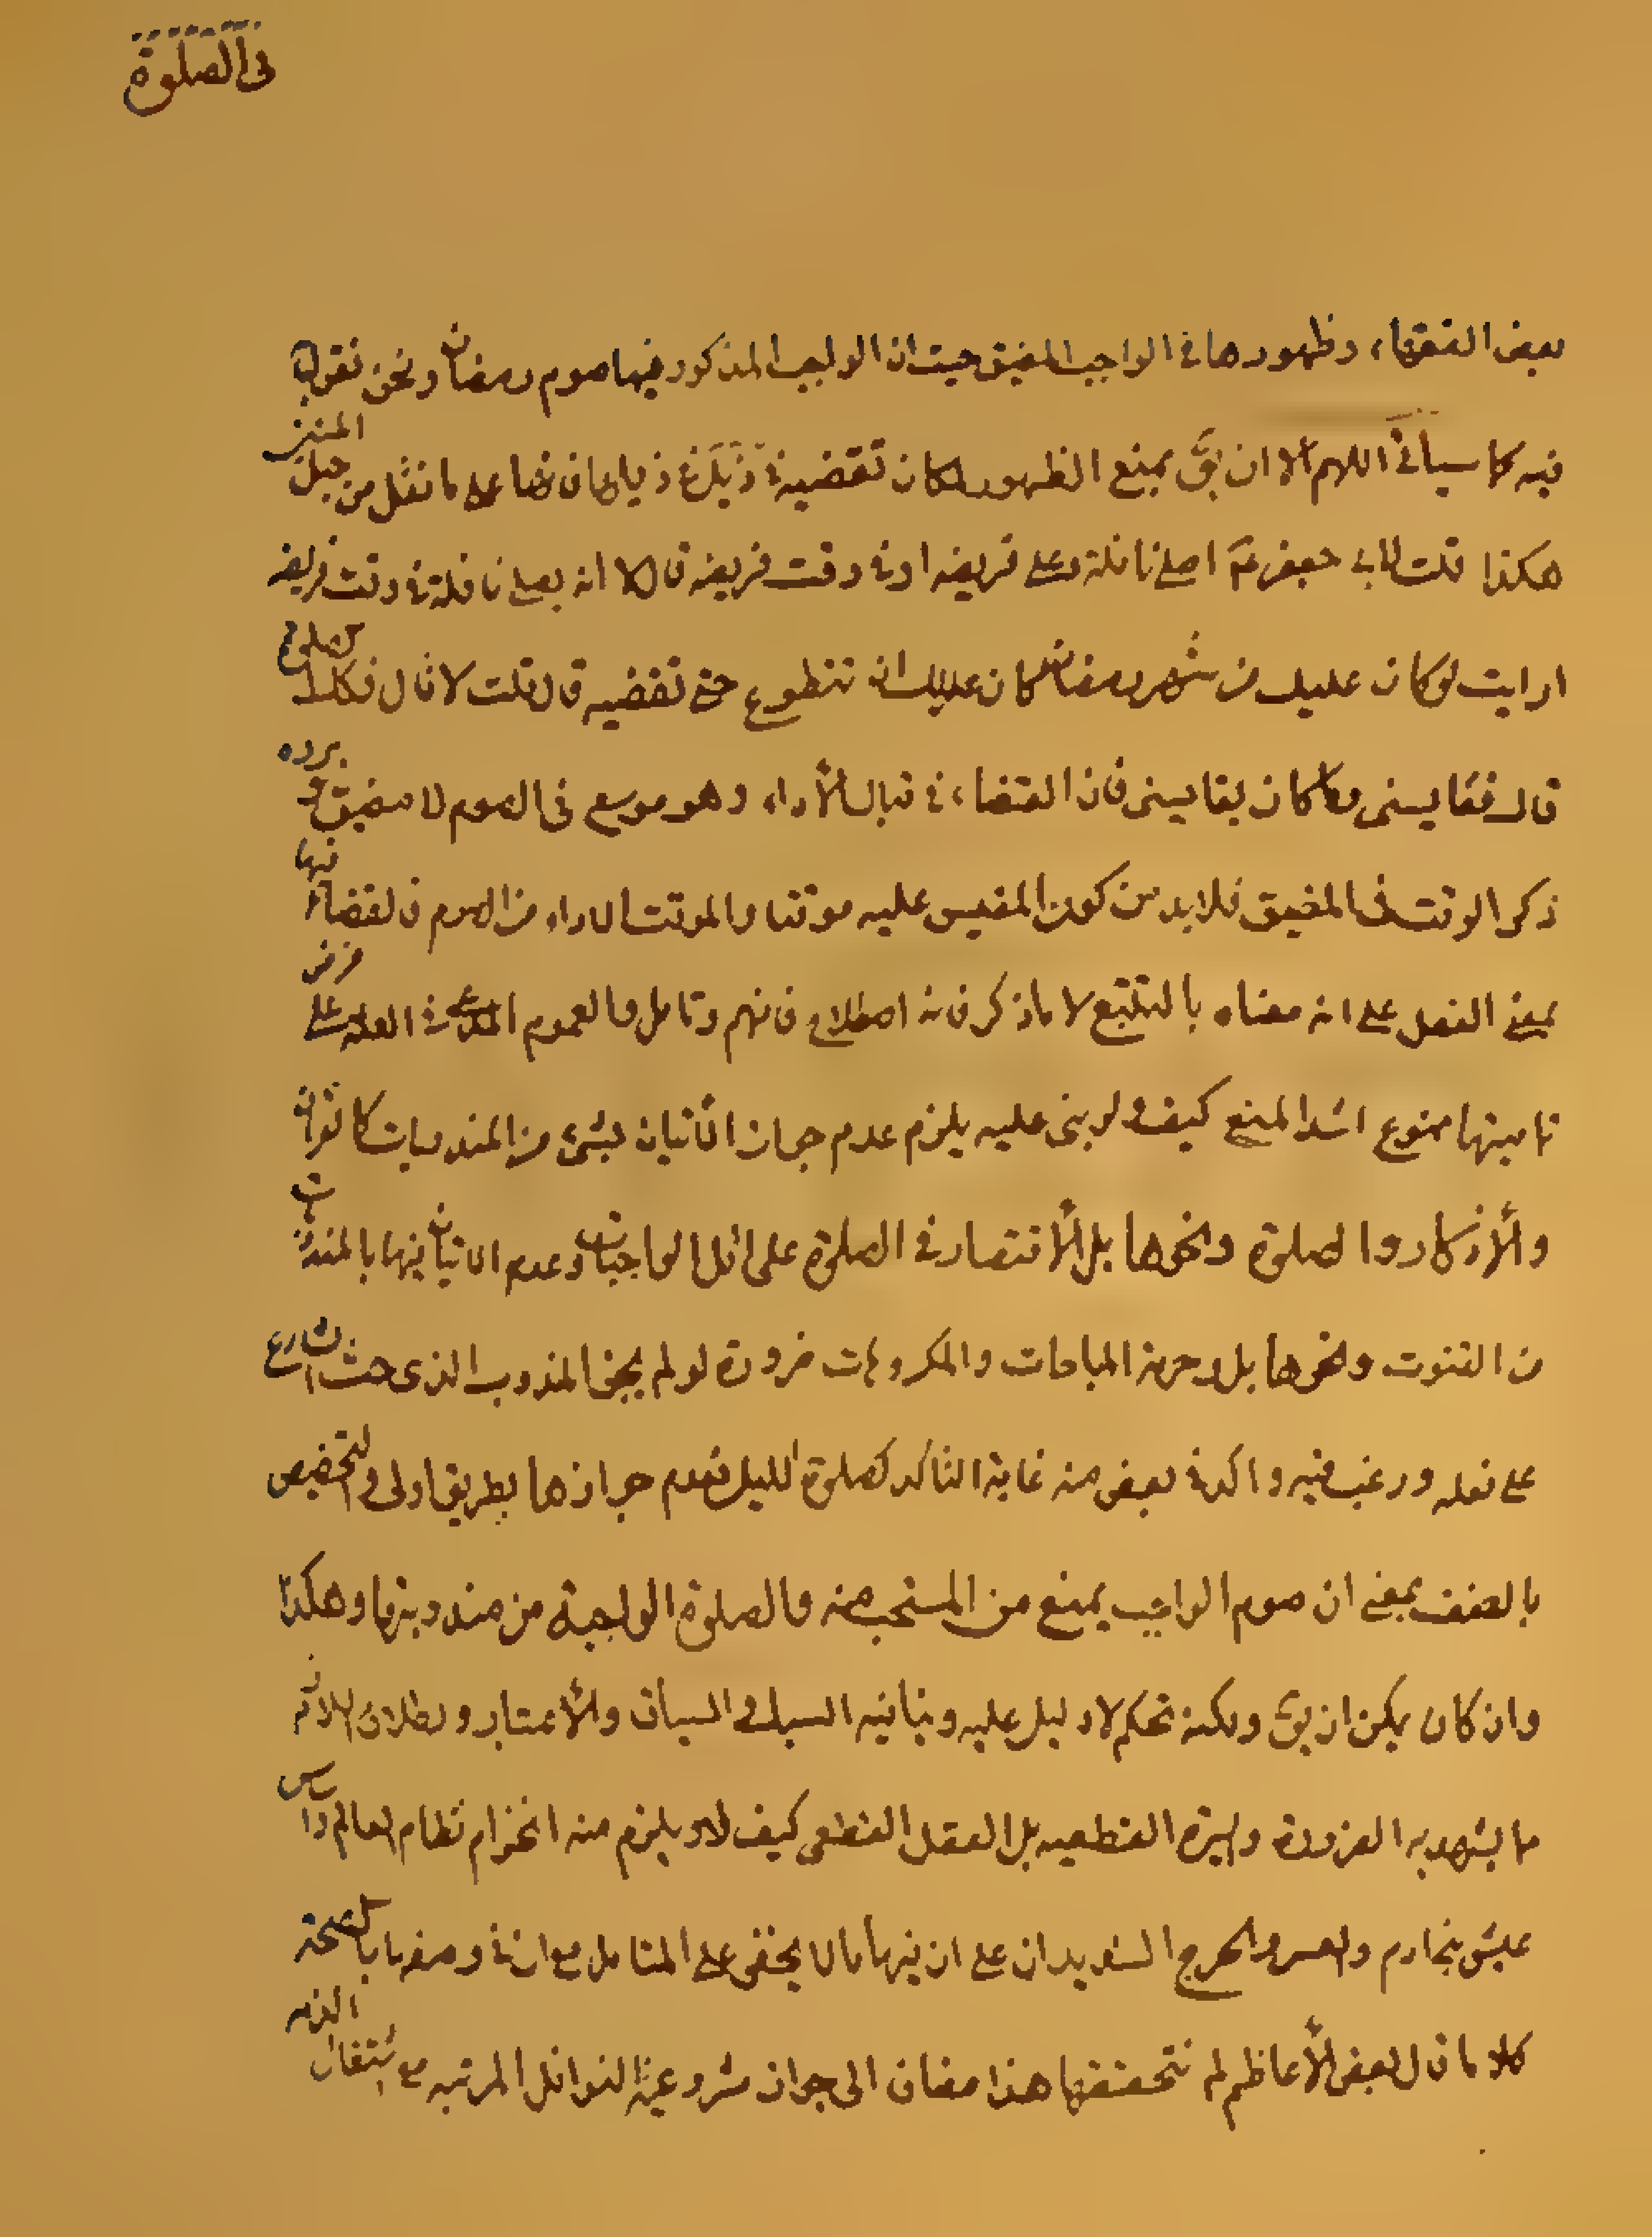 في الصلوة
بعض الفقهاء وظهورها في الواجب المضيق حيث ان الواجب المذكور فيها صوم رمضان ونحن نقول
فيه كما سيأتي اللهم الا ان يق بمنع الظهور لمكان تقضيه في ذيلها فانها على ما نقل من
هكذا قلت لابي جعفر ع اصلي نافلة وعلي فريضة او في وقت فريضة قال لا انه لا يصلي نافلة في وقت فريضة
ارايت لو كان عليك من شهر رمضان كان عليك ان تتطوع حتى تقضيه قال قلت لا قال فكذلك الصلوة
قال فقايسني وما كان يقايسني فان القضاء في قبال الأداء وهو موسع في الصوم لا مضيق
ذكر الوقت في المضيق فلا بد من كون المقيس عليه موقتا والموقت الاداء من الصوم فالقضاء فيها
بمعنى الفعل على انه معناه بالتتبع لا ما ذكر فانه اصطلاح فافهم وتامل والعموم في العلة على فرض
تماميتها ممنوع اشد المنع كيف ولو بنى عليه يلزم عدم جواز الأتيان بشئ من المندوبات كالقران
والأذكار والصلوة ونحوها بل الأقتصار في الصلوة على اقل الواجبات وعدم الاتيان فيها بالمندوبات
من القنوت ونحوها بل وحرمة المباحات والمكروهات ضرورة لو لم يجز المندوب الذي حث الشارع
على فعله ورغب فيه واكد في بعض منه غاية التاكد كصلوة الليل فعدم جوازها بطريق اولى والتخصيص
بالصنف بمعنى ان صوم الواجب يمنع من المستحب منه والصلوة الواجبة من مندوبتها وهكذا
وان كان يمكن ان يق ولكنه تحكم لا دليل عليه وينافيه السياق والأعتبار وبطلان اللازم
مما يشهد به الضرورة والسيرة القطعيه بل العقل القطعي كيف لا ويلزم منه انخرام نظام العالم واساس
عيش بني ادم والعسر والحرج الشديدان على ان فيها ما لا يخفى على المتامل مع ان في وصفها بالصحة
كلاما قال بعض الأعاظم لم نتحققها هذا مضافا الى جواز مشروعية النوافل المرتبه مع اشتغال الذمه